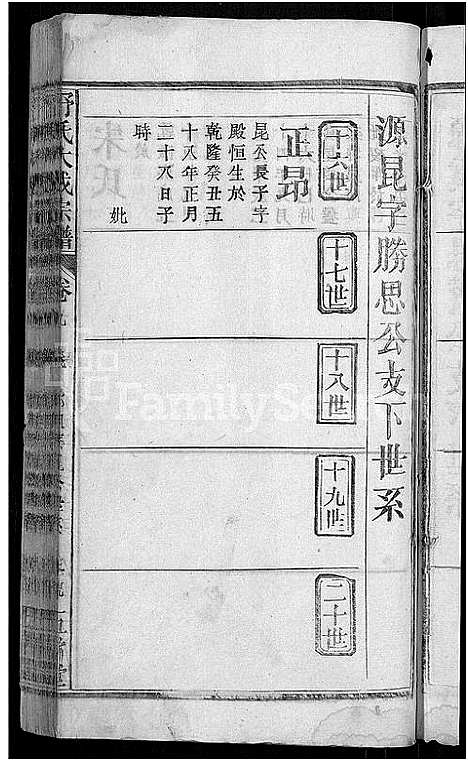 源昆字勝思公支下世系
十六世
正昂
昆公長子字
殿恒生於
乾隆癸丑五
十八年正月
二十八日子
時
妣
十七世
十八世
十九世
二十世
氏大成宗譜
卷九
FamilySe